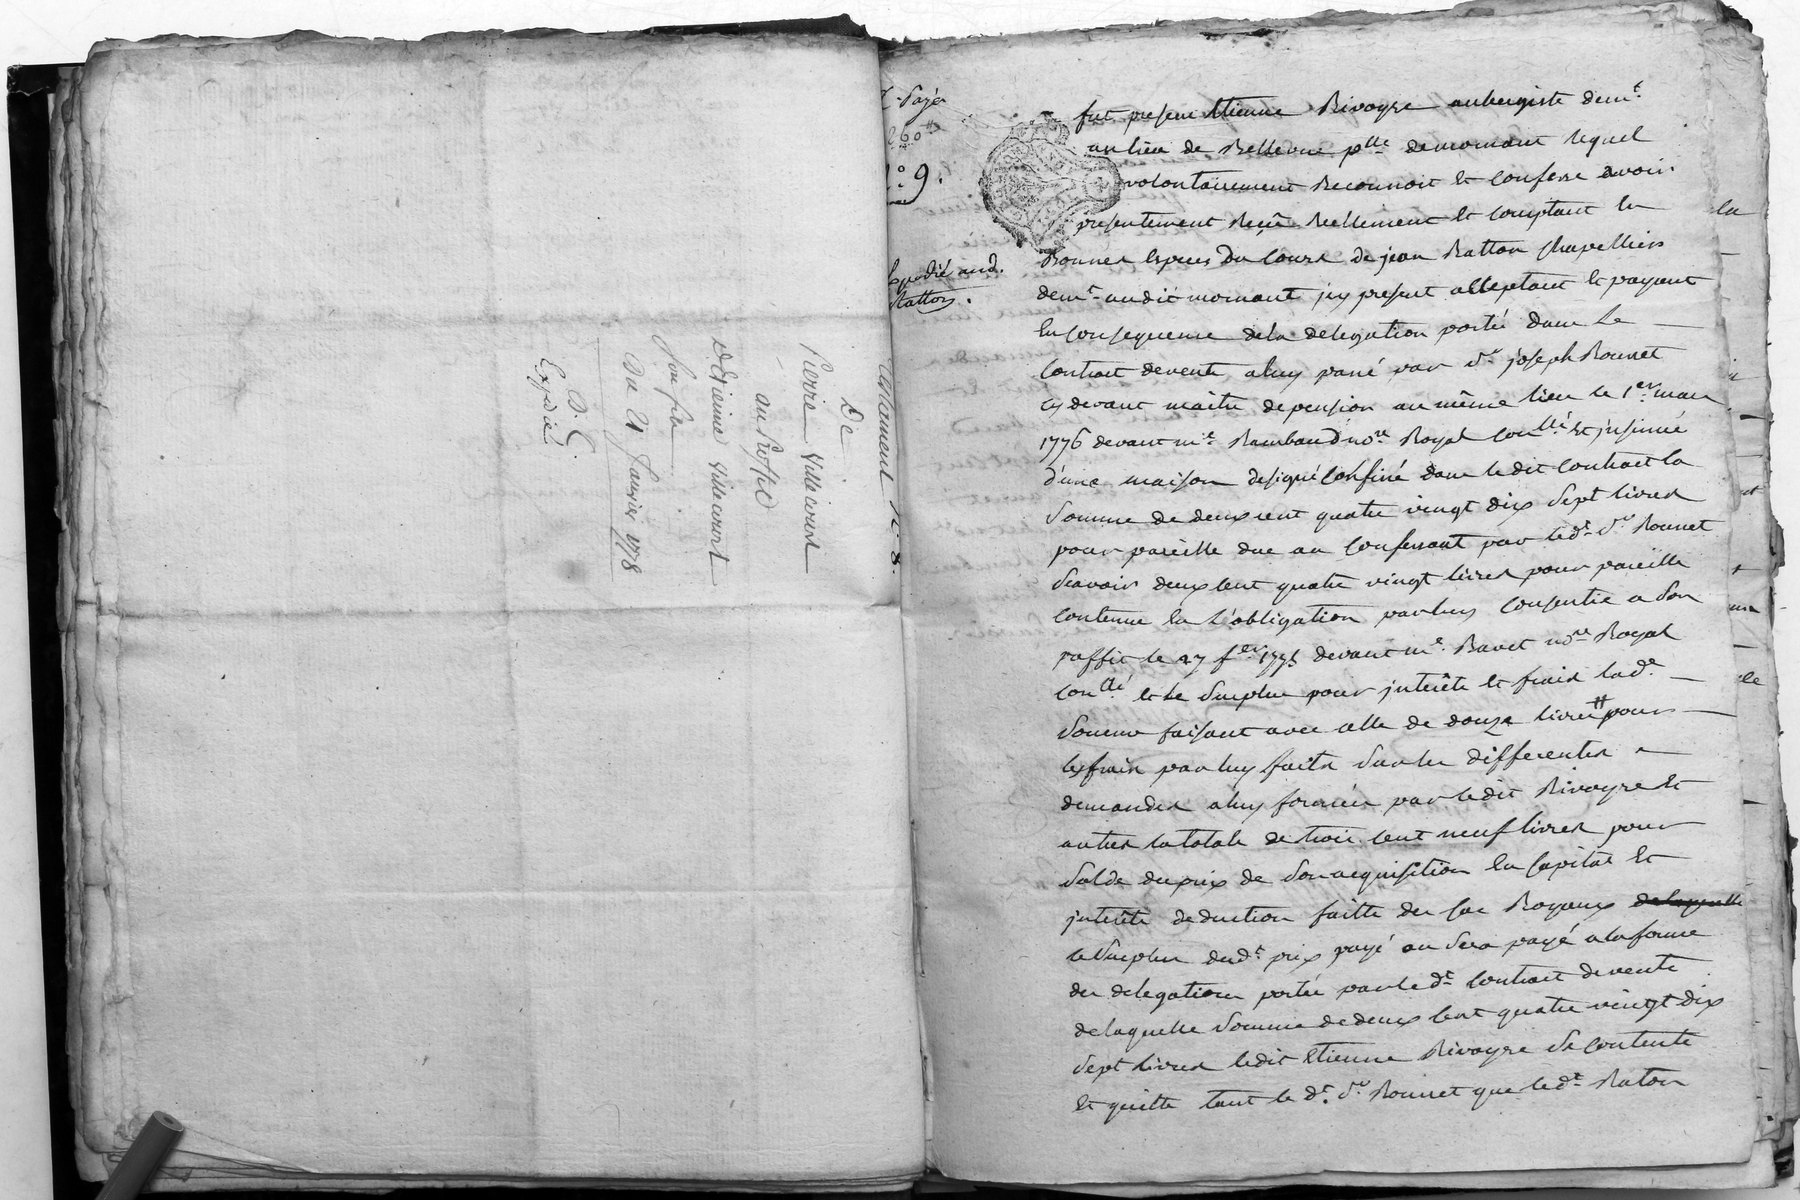 testament N.8.
De
Pierre Villecourt
au Profit
D'Etienne Villecourt
son fils
Du 21 Janvier 1778
D. C.
Expédié
payé
260#
n.° 9.
Expedié aud.
Ratton.
fut present Etienne Rivoyre aubergiste dem.t
au lieu de Bellevue p.sse de mornant lequel
volontairement Reconnoit et confesse avoir
presentement Reçû Reellement et comptant en
Bonnes Especes du Cours de jean Ratton chapellier
dem.t audit mornant jcy present acceptant et payant
En consequence de la delegation portée dans Le
Contrat de vente a luy passé par S.r joseph Bonnet
cy devant maitre de pension au même lieu le 1.er mars
1776 devant m.e Rambaud no.re Royal con.llé et jnsinué
d'une maison designé Confiné dans le dit Contrat la
Somme de deux cent quatre vingt dix Sept livres
pour pareille due au Confessant par led.t S.r Bonnet
Scavoir deux Cent quatre vingt livres pour pareille
contenue En L'obligation par luy Consentie a Son
proffit le 27 f.er 1775 devant m.e Bavet no.re Royal
con.llé et Le Surplus pour jnterêts et frais lad.e
Somme faisant avec celle de douze livres# pour
les frais par luy faits Sur les differentes
demandes a luy formées par le dit Rivoyre Et
autres la totale de trois Cent neuf livres pour
Solde du prix de Son acquisition En Capital Et
jnterêts deduction faitte des Sac Royaux de laquelle
le Surplus dud.t prix payé ou Sera payé a la forme
des delegations portées par le d.t Contrat de vente
de laquelle Somme de deux Cent quatre vingt dix
Sept livres ledit Etienne Rivoyre Se Contente
Et quitte tant le d.t S.r Bonnet que led.t Raton